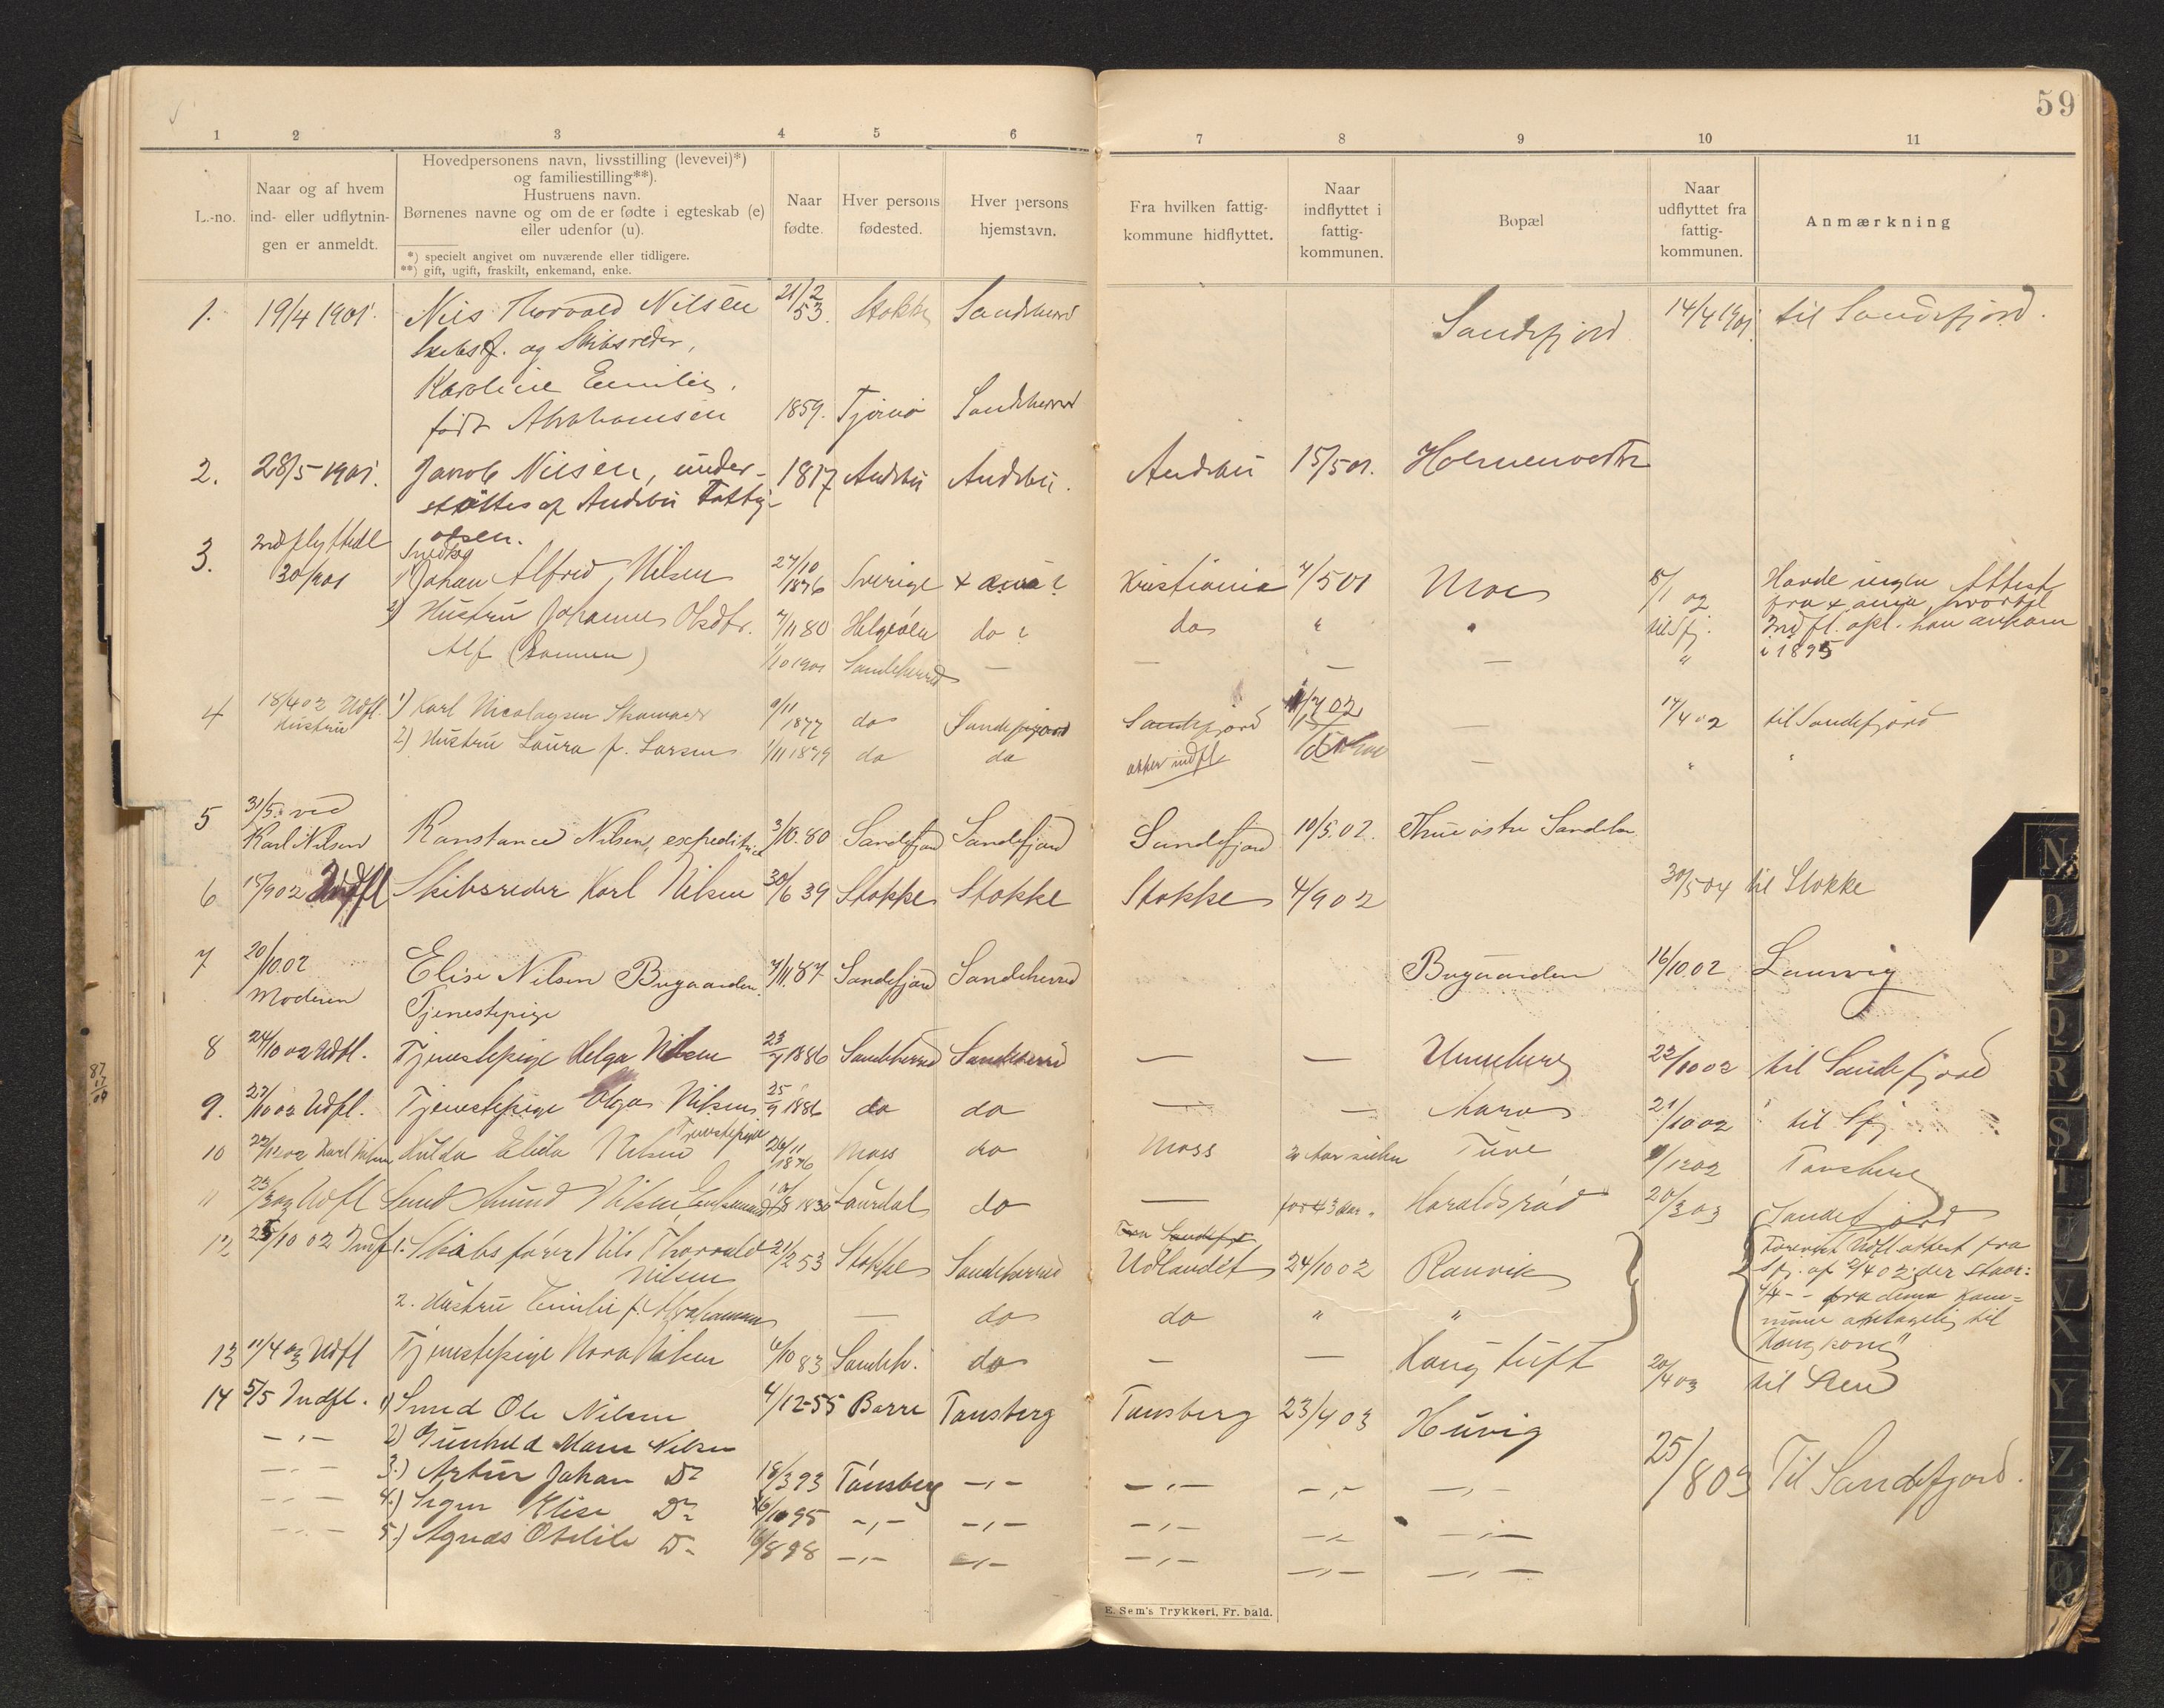 59
1 2 3 4 5 6 7 8 9 10 11
L.-no.
Naar og af hvem
ind- eller udflytnin-
gen er anmeldt.
Hovedpersonens navn, livsstilling (levevei)*)
og familiestilling**).
Hustruens navn.
Børnenes navne og om de er fødte i egteskab (e)
eller udenfor (u).
*) specielt angivet om nuværende eller tidligere.
**) gift, ugift, fraskilt, enkemand, enke.
Naar
fødte.
Hver persons
fødested.
Hver persons
hjemstavn.
Fra hvilken fattig-
kommune hidflyttet.
Naar
indflyttet i
fattig-
kommunen.
Bopæl
Naar
udflyttet fra
fattig-
kommunen.
Anmærkning
1. 19/4 1901. Nils Thorvald Nilsen 21/2 53. Stokke Sandeherred Sandefjord 14/4 1901. til Sandefjord.
Skibsf. og Skibsreder,
Karoline Emilie,
født Abrahamsen 1859. Tjømø Sandeherred
2. 28/5 1901. Jacob Nilsen, under- 1817 Andebu Andebu. Andebu 15/5 01.
støttes af Andebu Fattig-
3. Indflyttede
30/ 1901 1) Johan Alfred Nilsen 27/10 1876 Sverige Kristiania 4/5 01 Moe 5/1 02 Havde ingen Attest
2) Hustru Johanne Olsdtr. 7/11 80 do ? do " til Sfj. Indfl. opl. han ankom
Alf 1/10 1901 Sandeherred — — — — " i 1895
4 18/4 02 Udfl. 1) Karl Nicolaysen 9/11 1877 do Sandefjord Sandefjord 17/4 02 til Sandefjord
Hustru 2) Hustru Laura f. Larsen 1/11 1879 do do atter indfl. — " "
5 31/5. ved
Karl Nilsen Konstance Nilsen, expeditrice 3/10.80 Sandefjord Sandefjord Sandefjord 10/5.02. Thue østre
6 15/9 02 Indfl Skibsreder Karl Nilsen 30/6 39 Stokke Stokke Stokke 4/9 02 30/5 04 til Stokke
7 20/10.02
Moderen Elise Nilsen Bugaarden. 7/11.87 Sandefjord Sandeherred Bugaarden 16/10.02 Laurvig
Tjenestepige
8 24/10 02 Udfl. Tjenestepige Helga Nilsen 23/7 1886 Sandeherred Sandeherred — — Unneberg 22/10 02 til Sandefjord
9. 27/10 02 Udfl. Tjenestepige Olga Nilsen 25/9 1886 do do — — 21/10 02 til Sfj
10 22/12 02 Karl Nilsen Hulda Elida Nilsen Tjenestepige 26/11 1876 Moss do Moss Tuve 1/12 02 Tønsberg
11 23/3 03 Udfl Nilsen, Enkemand 1830 Laurdal do — for 43 Aar Haraldsrød 20/3 03 Sandefjord
12 25/10 02 Indfl 1. Skibsfører Nils Thorvald 21/2 53 Stokke Sandeherred Udlandet 24/10 02 Ranvik Forevist Udfl.attest fra
Nilsen
2. Hustru Emilie f. Abrahamsen — do do " " Sfj. af 2/4 02, der staar:
fra denne Kom-
mune antagelig til
Hongkong"
13 11/4 03 Udfl Tjenestepige Nora Nilsen 4/10 83 Sandeh. do — — Haugtuft 20/4 03 til Sem
14 5/5 Indfl. 1) Smed Ole Nilsen 4/12-55 Borre Tønsberg Tønsberg 23/4 03 Huvig
—"— 2) Gunhild Marie Nilsen
—"— 3.) Artur Johan Do 18/3 93 Tønsberg —"— —"— —"— —"— 25/8 03 Til Sandefjord.
—"— 4.) Signe Elise Do 95 —"— —"— —"— —"— —"—
—"— 5.) Agnes Otilie Do 16/8 98 —"— —"— —"— —"— —"—
E. Sem's Trykkeri, Fr.hald.
N
O
P
Q
R
S
T
U
V
X
Y
Z
Ø